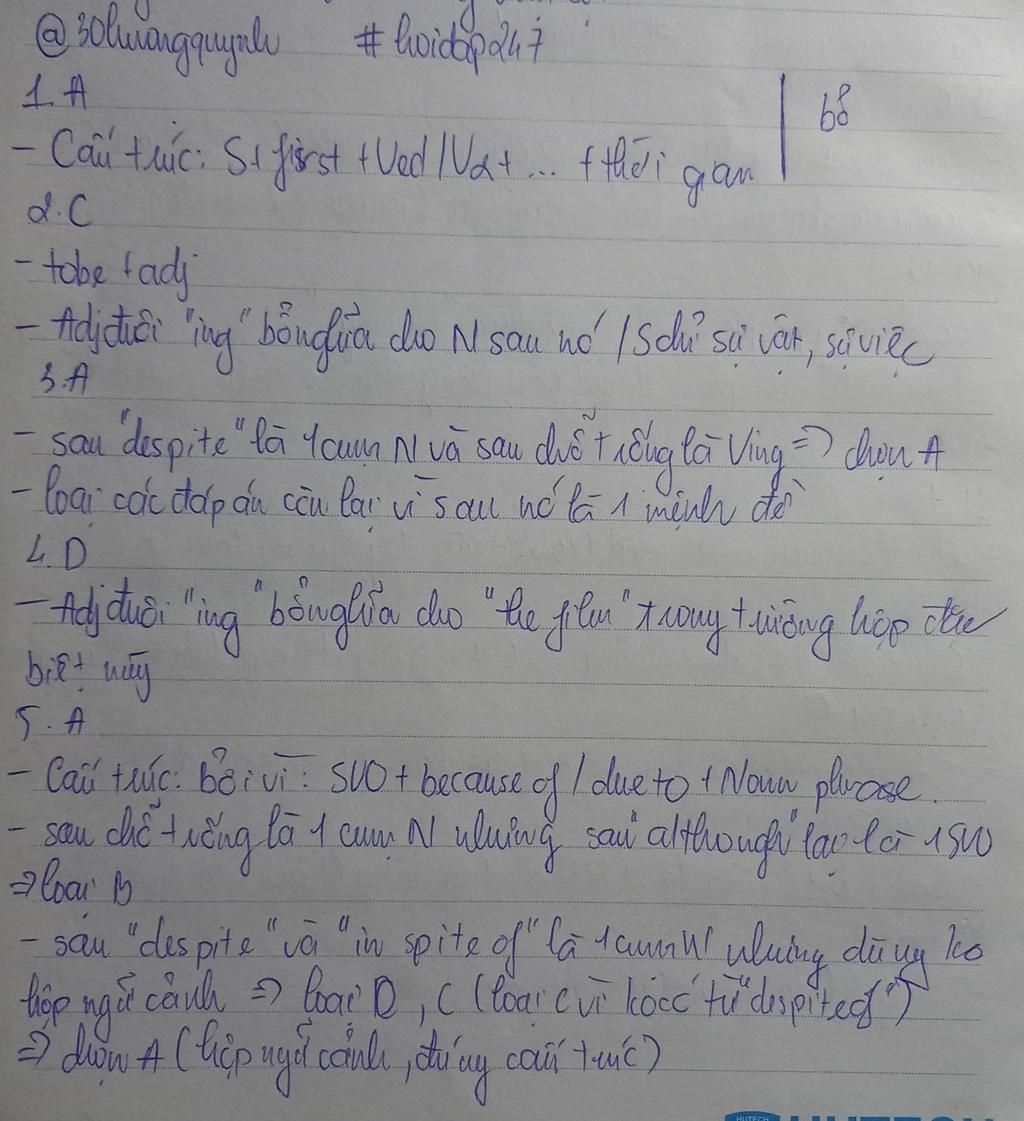 @30huongquynh #hoidap247
1. A
- Cấu trúc: S + first + Ved/V2 + ... + thời gian | bỏ
2. C
- tobe + adj
- Adj đuôi "ing" bổ nghĩa cho N sau nó / S chỉ sự vật, sự việc
3. A
- sau "despite" là 1 cụm N và sau chỗ trống là Ving => chọn A
- loại các đáp án còn lại vì sau nó là 1 mệnh đề
4. D
- Adj đuôi "ing" bổ nghĩa cho "the film" trong trường hợp đặc
biệt này
5. A
- Cấu trúc: bởi vì: SVO + because of / due to + Noun phrase.
- sau chỗ trống là 1 cụm N nhưng sau "although" lại là 1 SVO
=> loại B
- sau "despite" và "in spite of" là 1 cụm N nhưng dùng ko
hợp ngữ cảnh => loại D, C (loại C vì kó có từ "despite of")
=> chọn A (hợp ngữ cảnh, đúng cấu trúc)
HUTECH